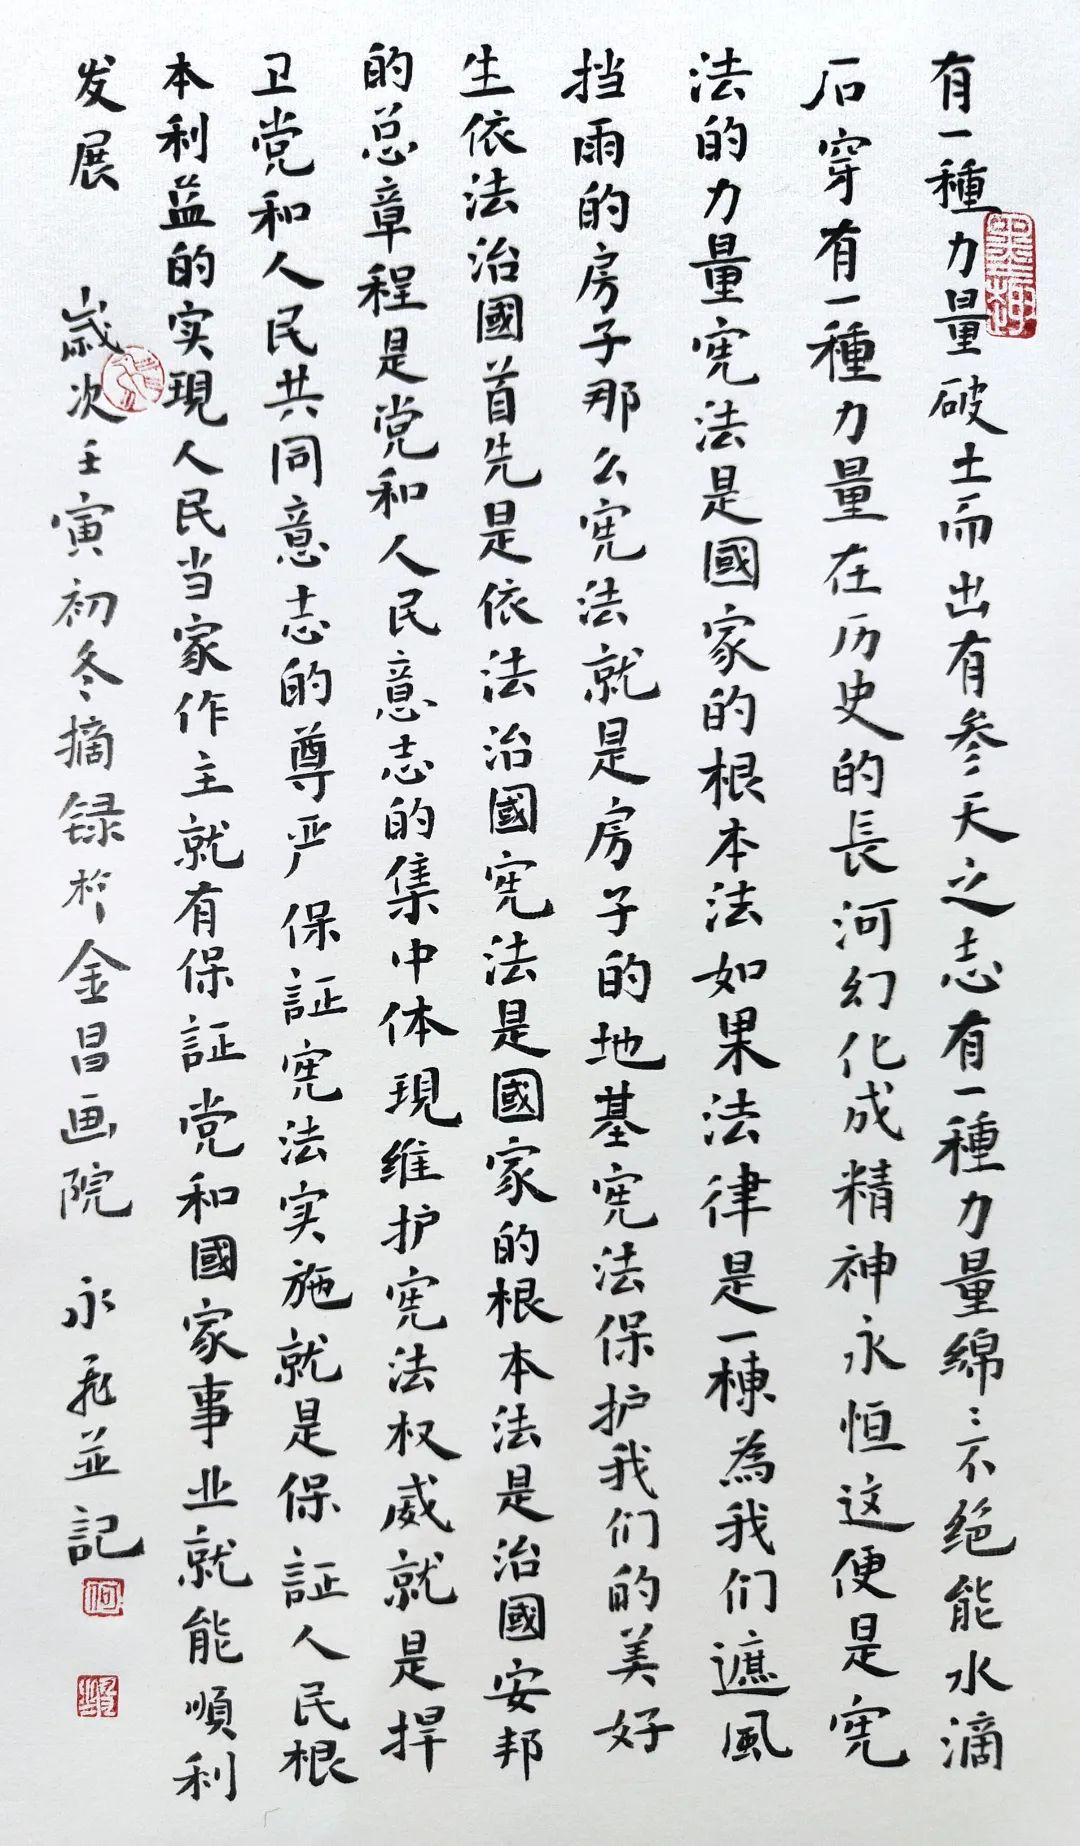 有一種力量破土而出有参天之志有一種力量綿〻不绝能水滴
石穿有一種力量在历史的長河幻化成精神永恒这便是宪
法的力量宪法是國家的根本法如果法律是一棟為我们遮風
挡雨的房子那么宪法就是房子的地基宪法保护我们的美好
生依法治國首先是依法治國宪法是國家的根本法是治國安邦
的总章程是党和人民意志的集中体現维护宪法权威就是捍
卫党和人民共同意志的尊严保証宪法实施就是保証人民根
本利益的实現人民当家作主就有保証党和國家事业就能順利
发展 歲次壬寅初冬摘録於金昌画院 永飛並記